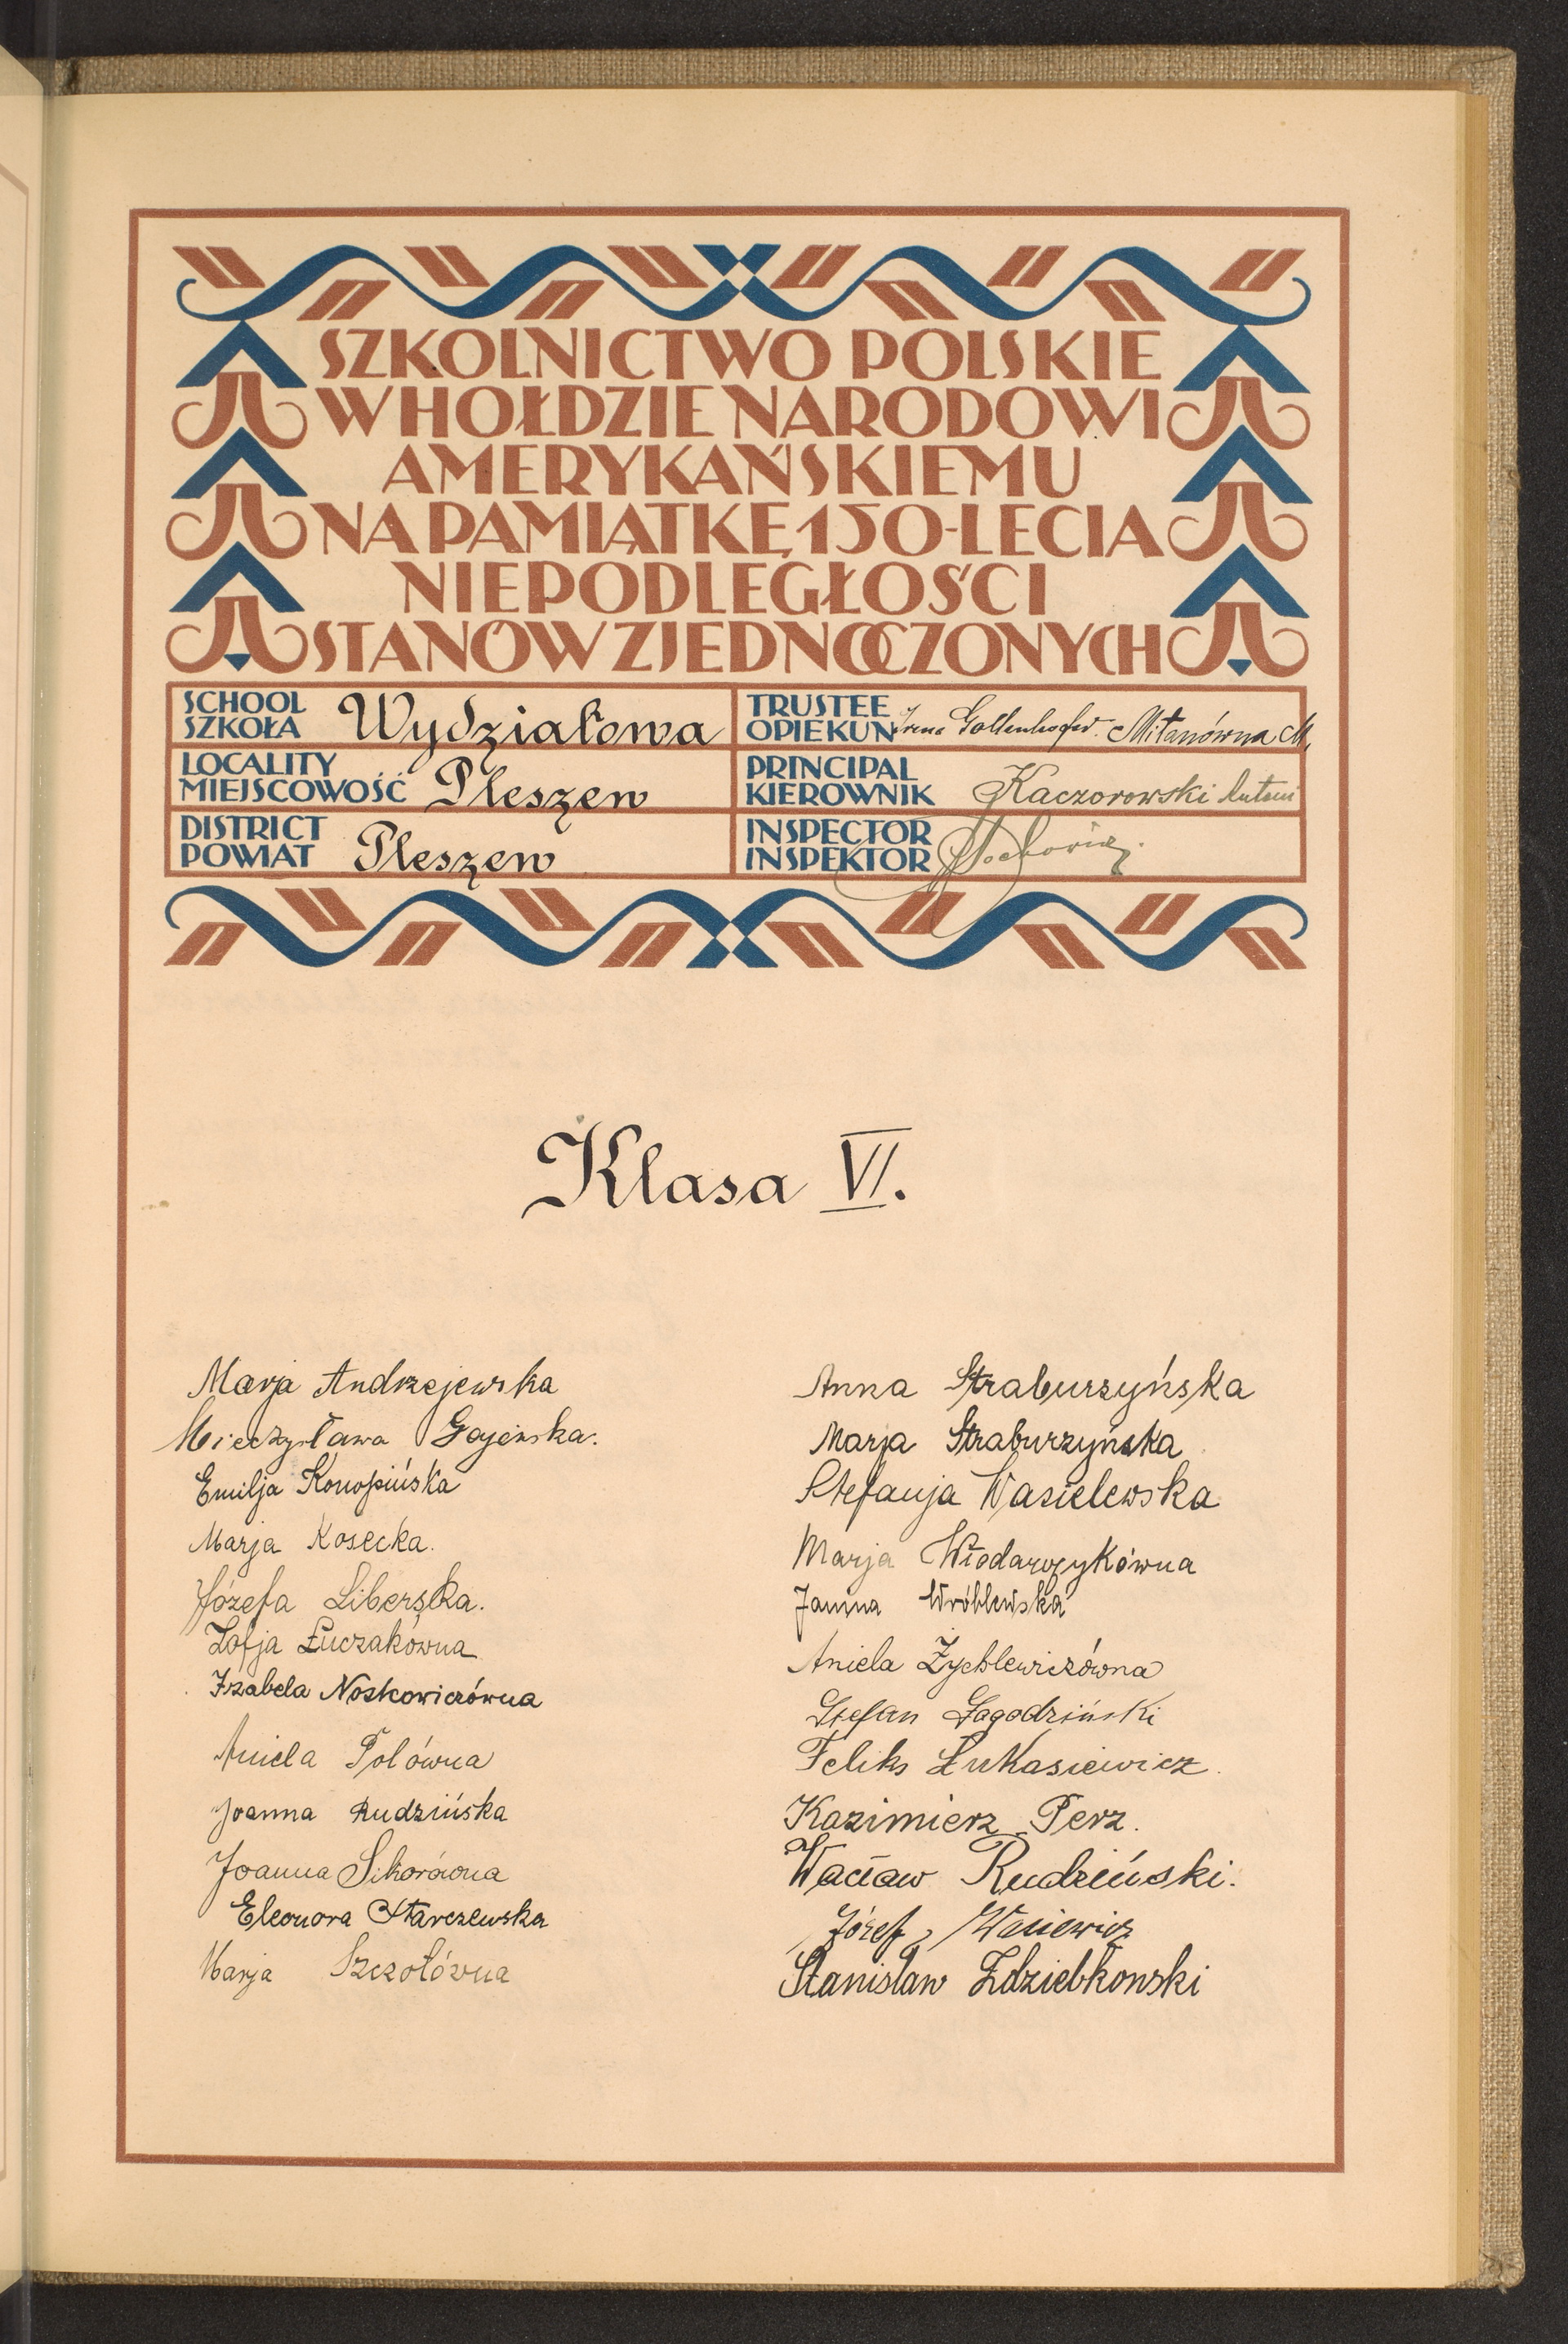 SZKOLNICTWO POLSKIE
W HOŁDZIE NARODOWI
AMERYKAŃSKIEMU
NA PAMIĄTKĘ 150-LECIA
NIEPODLEGŁOŚCI
STANÓW ZJEDNOCZONYCH
SCHOOL
SZKOŁA Wydziałowa
TRUSTEE
OPIEKUN Irena Mitanówna M.
LOCALITY
MIEJSCOWOŚĆ Pleszew
PRINCIPAL
KIEROWNIK Kaczorowski Antoni
DISTRICT
POWIAT Pleszew
INSPECTOR
INSPEKTOR
Klasa VI.
Marja Andrzejewska
Mieczysława Gajewska.
Emilja Konopińska
Marja Kosecka.
Józefa Liberska.
Zofja Łuczakówna
Izabela Noskowiczówna
Aniela Polówna
Joanna Rudzińska
Joanna Sikorówna
Eleonora Starczewska
Marja Szczotówna
Anna Straburzyńska
Marja Straburzyńska
Stefanja Wasielewska
Marja Włodarczykówna
Janina Wróblewska
Aniela Żychlewiczówna
Stefan Jagodziński
Feliks Łukasiewicz.
Kazimierz Perz.
Wacław Rudziński.
Józef Wasiewicz
Stanisław Zdziebkowski